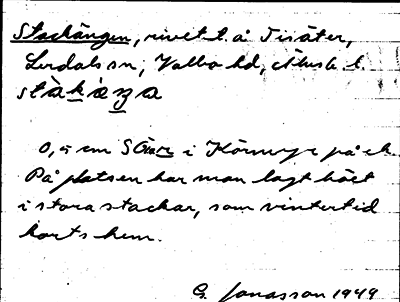 Stackängen, rivet t. å Tisäter,
Lerdals sn, Valbo hd, Älvsb. l.
stàkàŋa
0,5 cm S Ö i på ek.
På platsen har man lagt höet
i stora stackar, som vintertid
körts hem.
G. Jonasson 1949